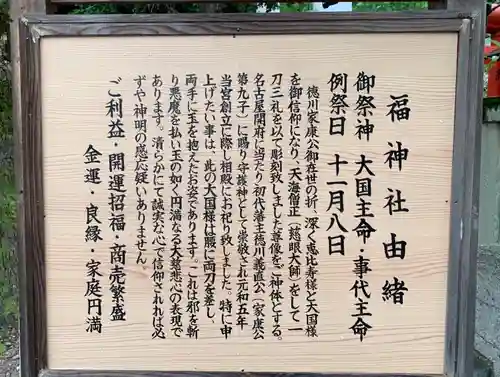 福神社由緒
御祭神 大国主命・事代主命
例祭日 十一月八日
徳川家康公御在世の折、深く恵比寿様と大国様
を御信仰になり、天海僧正（慈眼大師）をして一
刀三礼を以て彫刻致しました尊像をご神体とする。
名古屋開府に当たり初代藩主徳川義直公（家康公
第九子）に賜り守護神として崇敬され元和五年
当宮創立に際し相殿にお祀り致しました。特に申
上げたい事は、此の大国様は服に両刀を差し、
両手に玉を抱えたお姿であります。これは邪を斬
り悪魔を払い玉の如く円満なる大慈悲心の表現で
あります。清らかにて誠実な心で信仰されれば必
ずや神明の感応疑いありません。
ご利益・開運招福・商売繁盛
金運・良縁・家庭円満